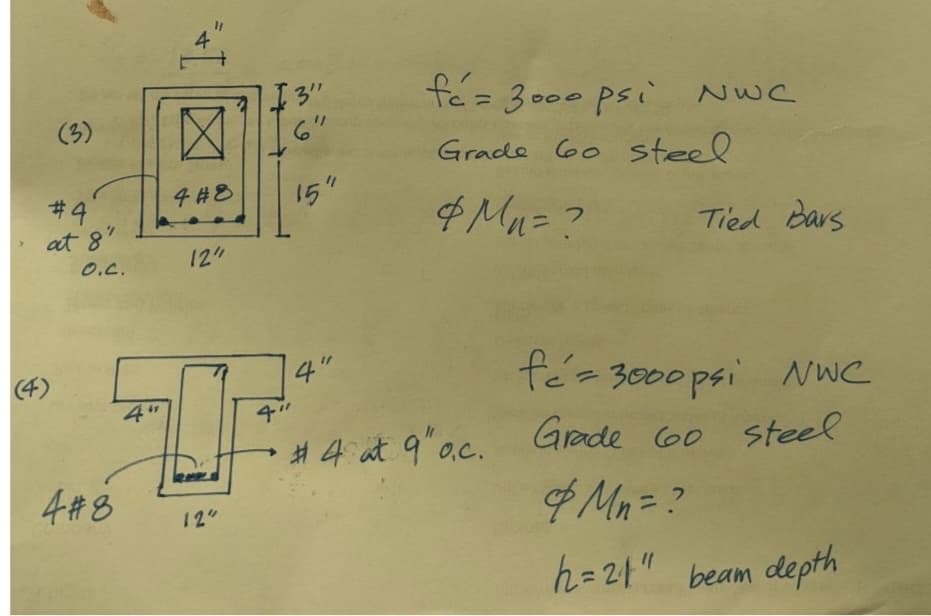 4"
3"
(3)
6"
4 #8
15"
#4
at 8"
o.c.
12"
fc' = 3000 psi NWC
Grade 60 steel
φMn = ?
Tied Bars
(4)
4"
4"
4"
#4 at 9" o.c.
4#8
12"
fc' = 3000 psi NWC
Grade 60 steel
φMn = ?
h = 21" beam depth